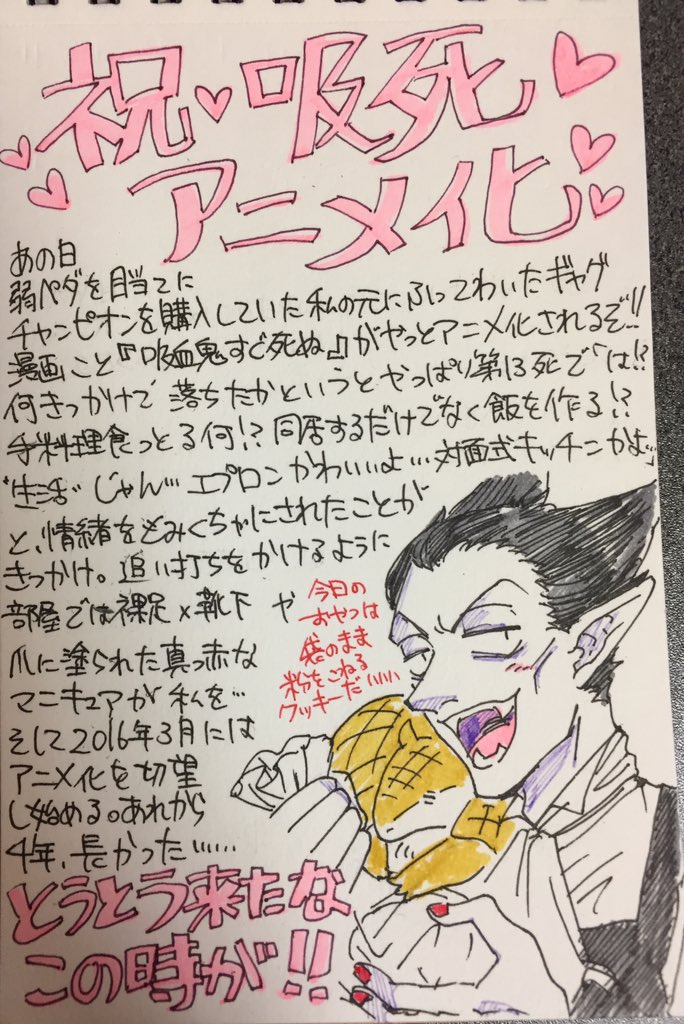 祝♥吸死
アニメ化
あの日
弱ペダを目当てに
チャンピオンを購入していた私の元にふってわいたギャグ
漫画こと『吸血鬼すぐ死ぬ』がやっとアニメ化されるぞ!!
何きっかけで落ちたかというとやっぱり第13死では!?
手料理食っとる何!?同居するだけでなく飯を作る!?
"生活"じゃん…エプロンかわいいよ…対面式キッチンかよ…
と、情緒をもみくちゃにされたことが
きっかけ。追い打ちをかけるように
部屋では裸足×靴下や
爪に塗られた真っ赤な
マニキュアが私を…
そして2016年3月には
アニメ化を切望
し始める。あれから
4年、長かった……
今日の
おやつは
袋のまま
粉をこねる
クッキーだ……
とうとう来たな
この時が!!